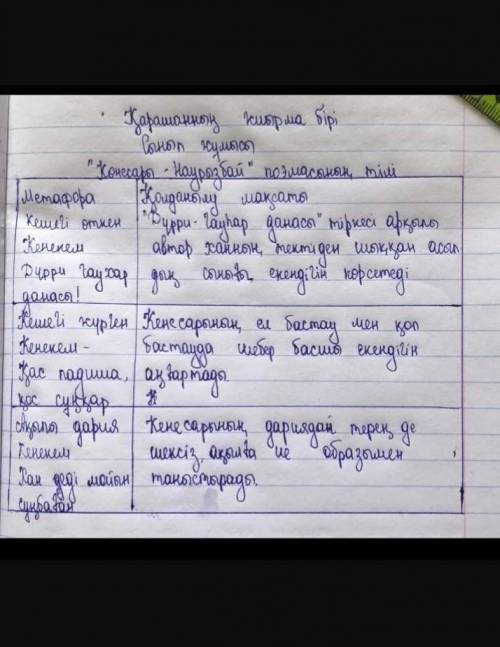 Қарашаның жиырма бірі
Сынып жұмысы
"Кенесары - Наурызбай" поэмасының тілі
Метафора
Қолданылу мақсаты
Кешегі өткен
Кенекем
Дүрри гауһар
данасы!
"Дүрри-гауһар данасы" тіркесі арқылы
автор ханның тектіден шыққан асыл
дың сынығы екендігін көрсетеді
Кешегі жүрген
Кенекем -
Қас падиша,
қос сұңқар
Кенесарының ел бастау мен қол
бастауда шебер басшы екендігін
аңғартады.
Ақылы дария
Кенекем
Хан деді мойын
сұнбаған
Кенесарының дариядай терең де
шексіз ақылға ие образымен
таныстырады.